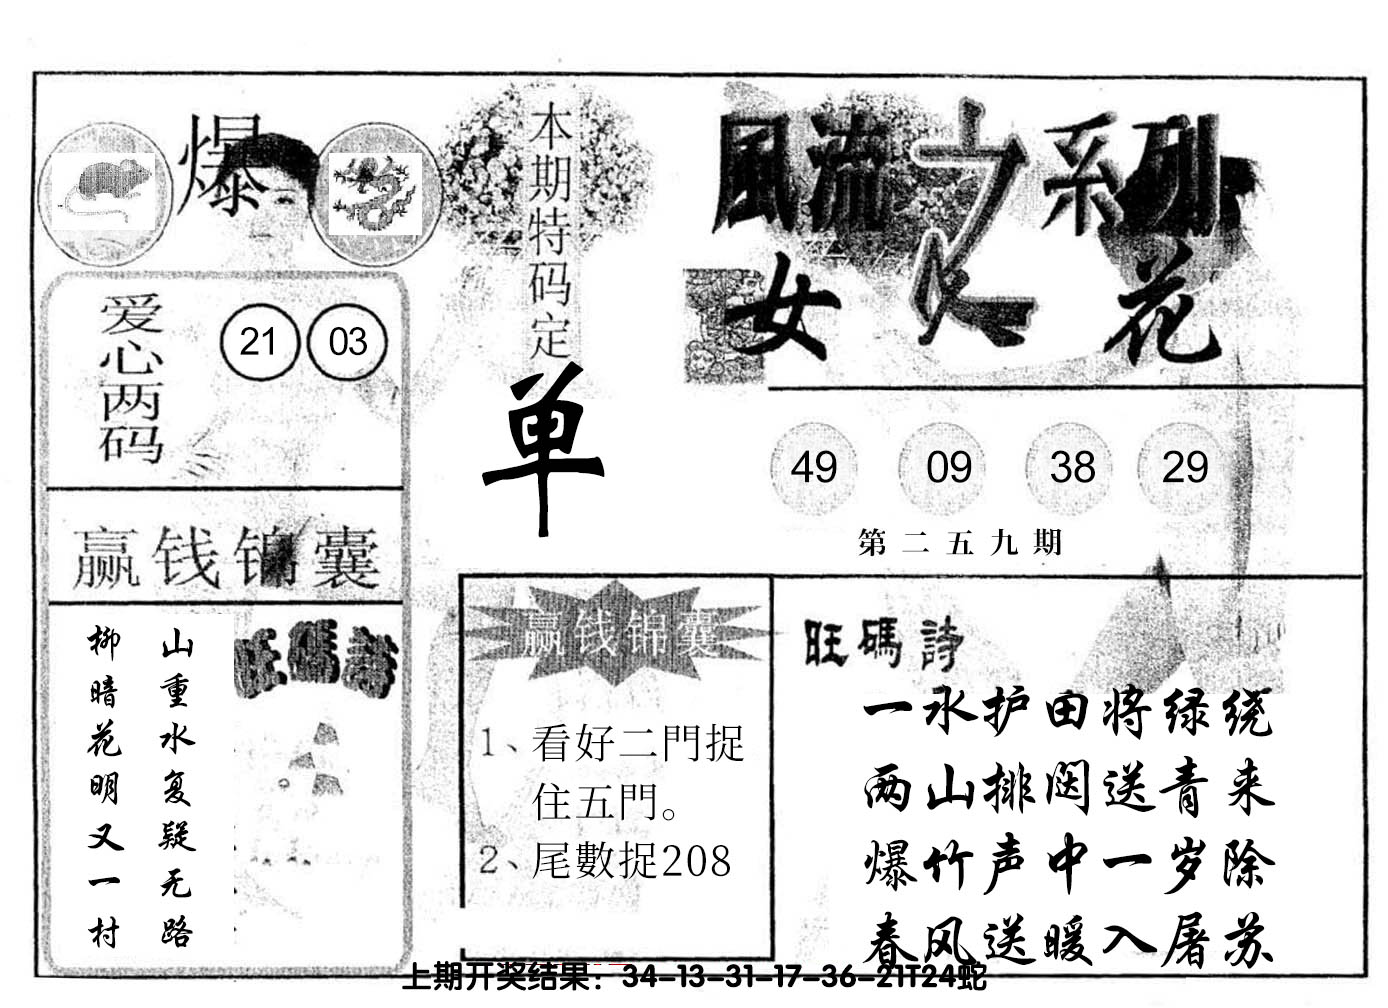 爆
本期特码定
单
風流之系列
女人花
爱心两码
21 03
49 09 38 29
第二五九期
赢钱锦囊
山重水复疑无路
柳暗花明又一村
旺碼詩
赢钱锦囊
1、看好二門捉
住五門。
2、尾數捉208
旺碼詩
一水护田将绿绕
两山排闼送青来
爆竹声中一岁除
春风送暖入屠苏
上期开奖结果：34-13-31-17-36-21T24蛇